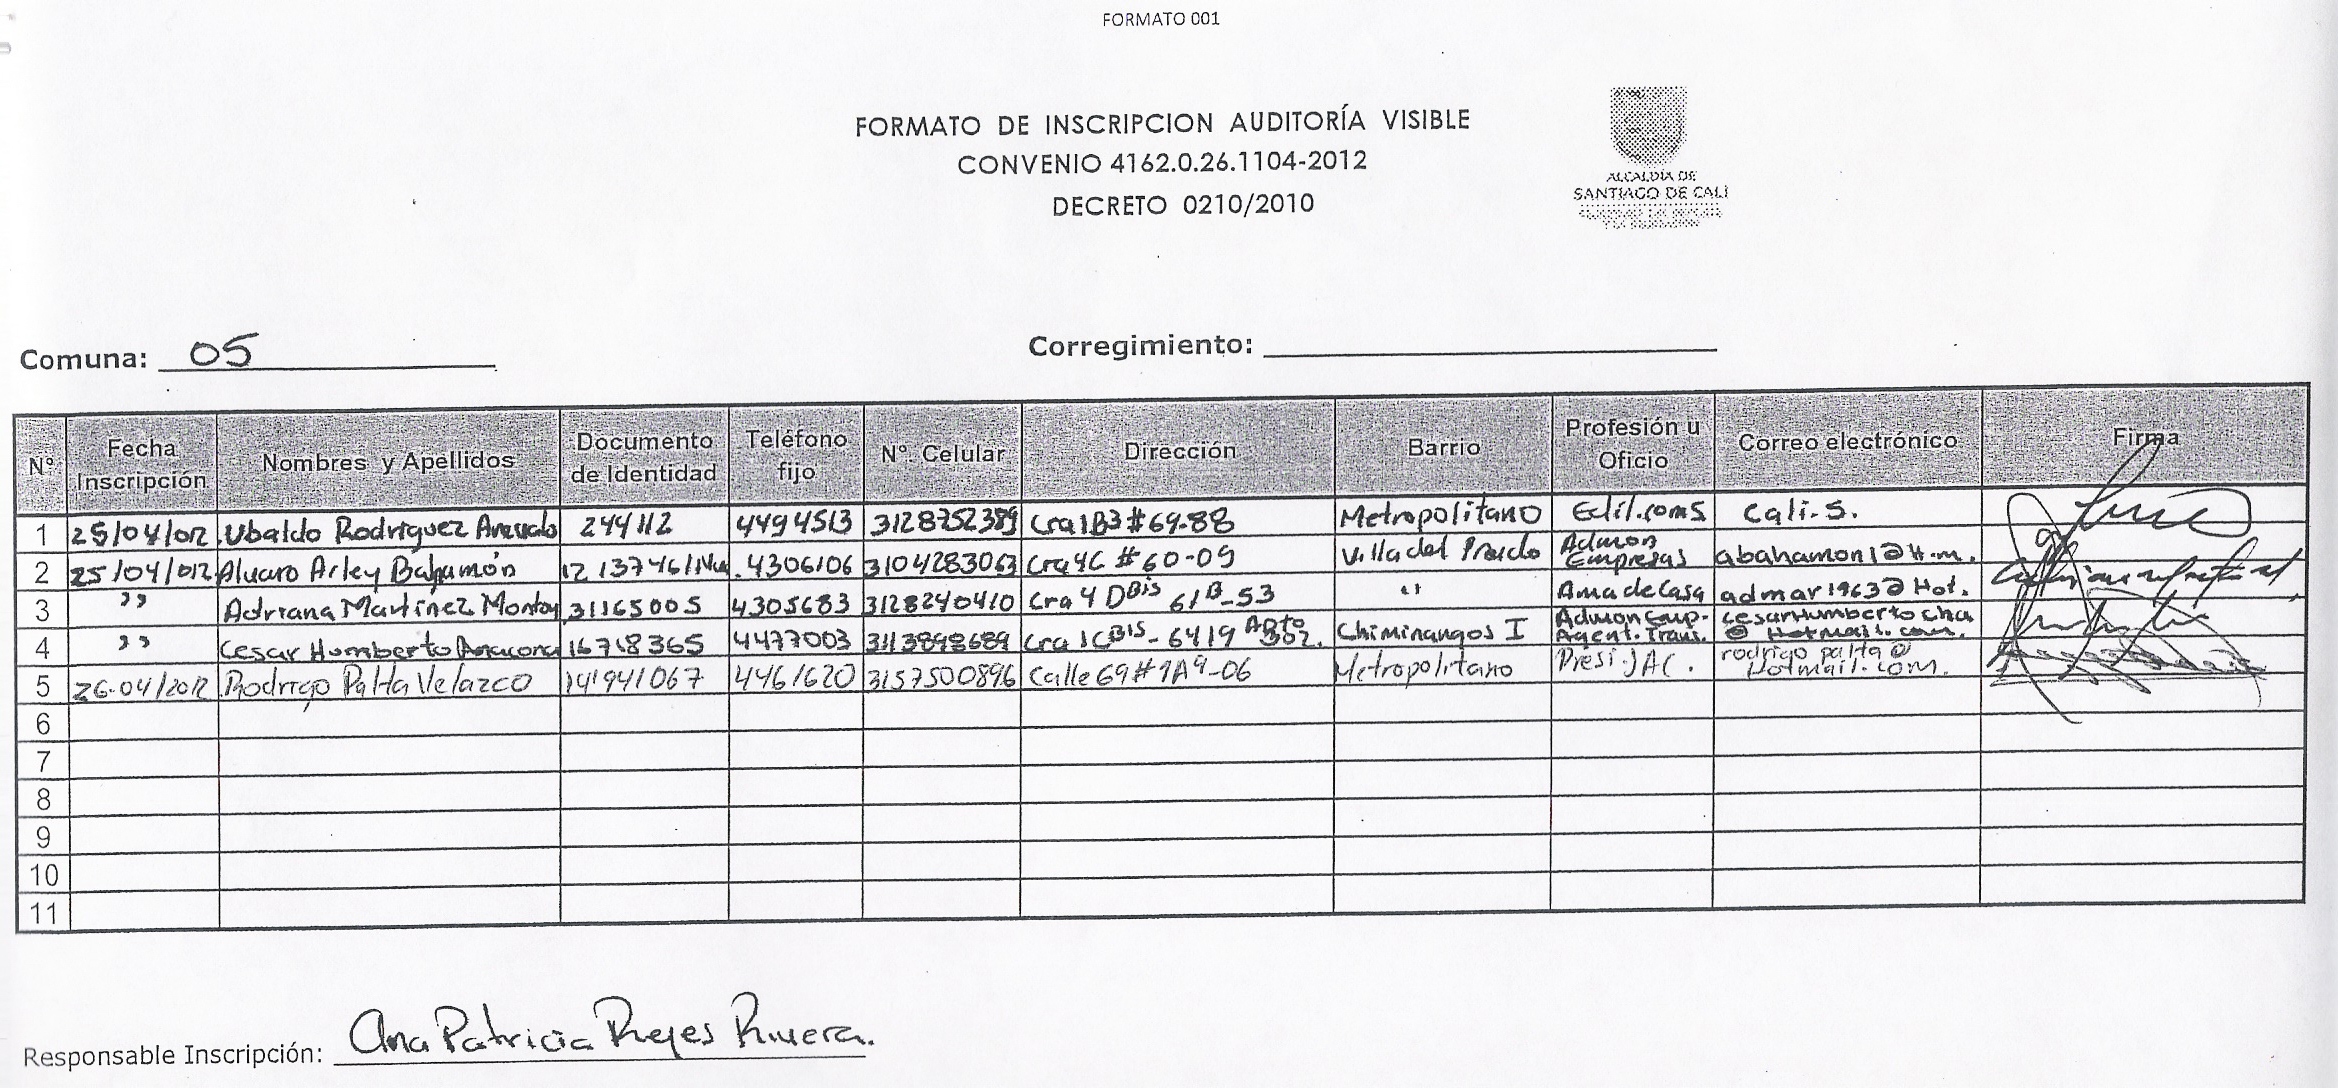 FORMATO 001
FORMATO DE INSCRIPCION AUDITORÍA VISIBLE
CONVENIO 4162.0.26.1104-2012
DECRETO 0210/2010
ALCALDÍA DE
SANTIAGO DE CALI
Comuna: 05
Corregimiento:
Nº Fecha Inscripción Nombres y Apellidos Documento de Identidad Teléfono fijo Nº. Celular Dirección Barrio Profesión u Oficio Correo electrónico Firma
1 25/04/012 Ubaldo Rodriguez 244112 4494513 3128752389 Cra 1B3 # 69-88 Metropolitano Edil. com5 Cali-5.
2 25/04/012 Alvaro Arley Bahamón 4306106 3104283063 Cra 4C # 60-09 Villa del Prado Admon Empresas abahamon1@H-m.
3 " Adriana Martinez Montoy 31165005 4305683 3128240410 Cra 4 D Bis 61B-53 " Ama de Casa admar1963@Hot.
4 " Cesar Humberto 16718365 4477003 3113898689 Cra 1C Bis - 6419 Apto 302. Chiminangos I Admon Emp. Agent. Trans. cesarHumberto cha @ Hotmail.com.
5 26-04/2012 Rodrigo Palta Velazco 4461620 3157500896 Calle 69 # 1A9-06 Metropolitano Presi. JAC. rodrigo palta @ Hotmail.com.
6
7
8
9
10
11
Responsable Inscripción: Ana Patricia Reyes Rivera.